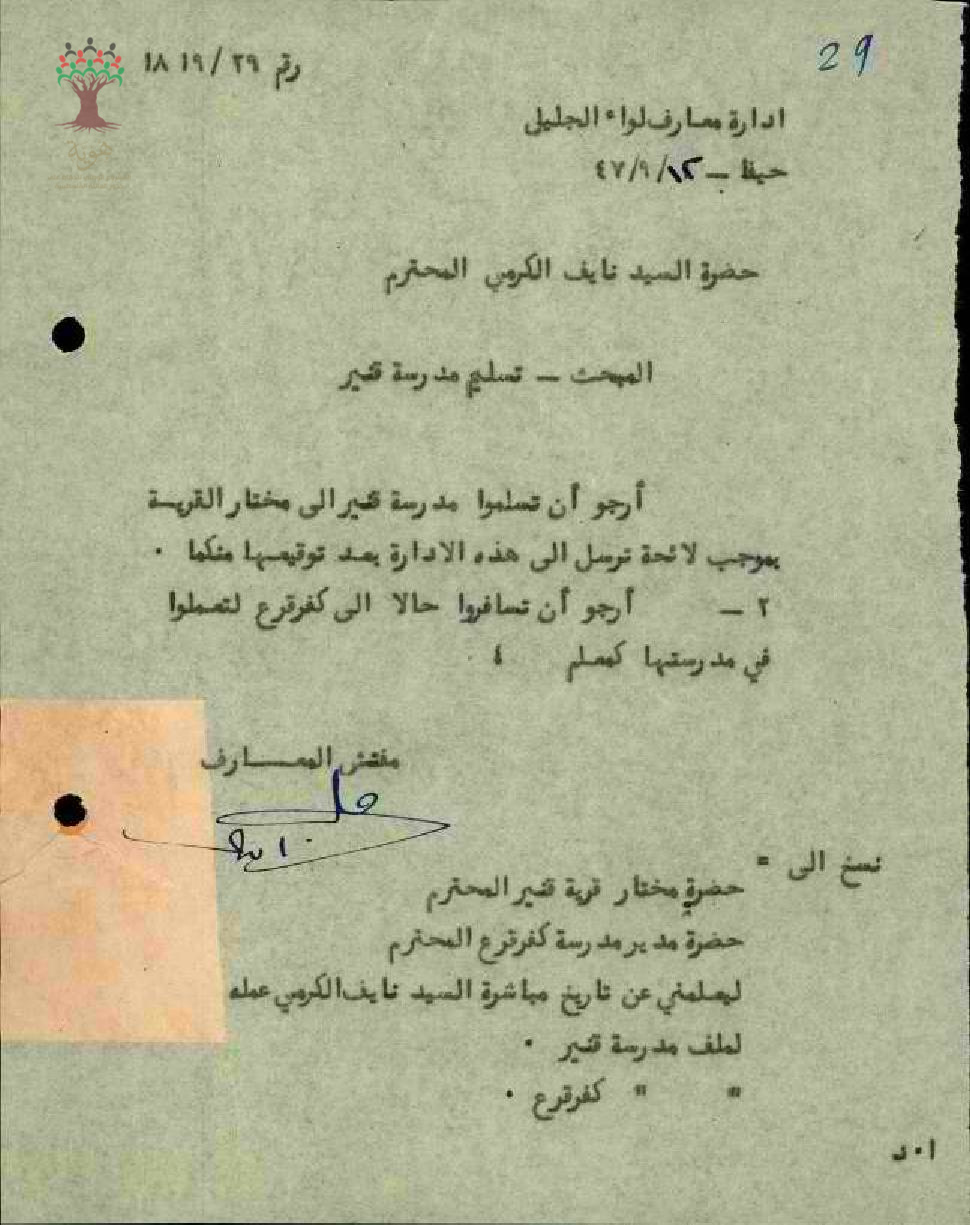 29
رقم ٢٩ / ١٩ ١٨
ادارة معارف لواء الجليلي
حيفا – ١٢/ ٩/ ٤٧
حضرة السيد نايف الكرمي المحترم
المبحث – تسليم مدرسة قنير
أرجو أن تسلموا مدرسة قنير الى مختار القريـة
بموجب لائحة ترسل الى هذه الادارة بعد توقيعها منكما .
٢ – أرجو أن تسافروا حالا الى كفرقرع لتعملوا
في مدرستها كمعلم ٤ .
مفتش المعـــارف
نسخ الى =
حضرة مختار قرية قنير المحترم
حضرة مدير مدرسة كفرقرع المحترم
ليعلمني عن تاريخ مباشرة السيد نايف الكرمي عمله
لملف مدرسة قنير .
" " كفرقرع .
ا٠د